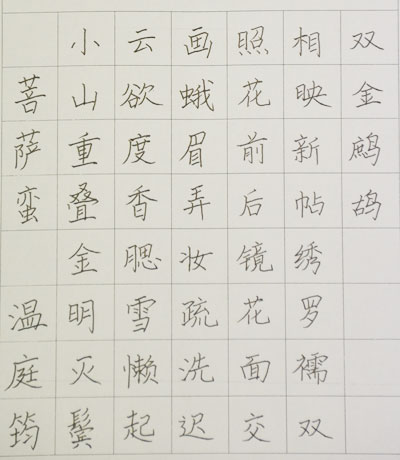 菩萨蛮 温庭筠
小山重叠金明灭鬓
云欲度香腮雪懒起
画蛾眉弄妆疏洗迟
照花前后镜花面交
相映新帖绣罗襦双
双金鹧鸪